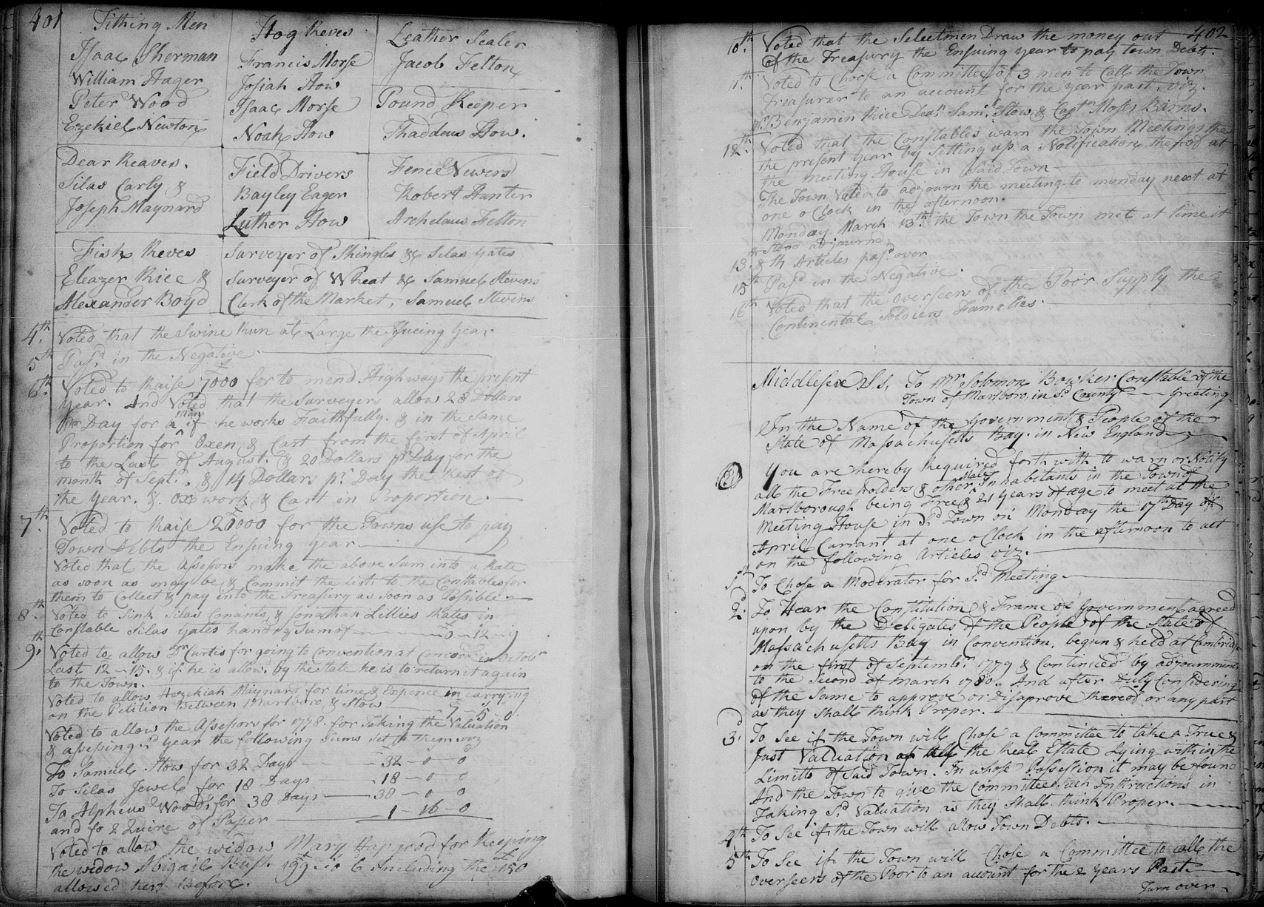 401
Tithing Men
Isaac Sherman
William Hager
Peter Wood
Ezekiel Newton
Hog Reves
Francis Morse
Josiah How
Isaac Morse
Noah How
Leather Sealer
Jacob Felton
Pound Keeper
Thaddeus How.
Dear Reaves.
Silas Carly &
Joseph Maynard
Field Drivers
Bayley Eager
Luther How
Fence Viwers
Robert Hunter
Archelaus Felton
Fish Reves
Eleazer Rice &
Alexander Boyd
Surveyor of Shingles &c Silas Gates
Surveyor of Wheat &c Samuel Stevens
Clerk of the Market, Samuel Stevens
4th. Voted that the Swine Run at Large the Insuing Year
5th Pasd in the Negative
6th Voted to Raise 7000 for to mend Highways the present
year. And Voted that the Surveyors allow 28 Dollars
pr Day for a man if he works Faithfully. & in the same
Proportion for Oxen & Cart from the first of April
to the Last of August. & 20 Dollars pr Day for the
month of Sept. & 14 Dollars pr Day the Rest of
the year. & Ox work & Cart in Proportion.
7th. Voted to Raise 20000 for the Towns use to pay
Town Debts the Ensuing year
Voted that the Assessors make the above Sum into a Rate
as soon as may be & Commit the List to the Constables for
them to Collect & pay into the Treasury as soon as Possible
8th Voted to Sink Silas Conants, & Jonathan Lillies Rates in
Constable Silas Gates hand ye Sum of 0-12-9
9th. Voted to allow Curtis for going to Convention at Concord in Octobr
Last 12-15. & if he is allowd by the State he is to return it again
to the Town.
Voted to allow Hezekiah Maynard for time & Expence in carrying
on the Petition Between Marlboro & Stow 9-5-0
Voted to allow the Assessors for 1778. for Taking the Valuation
& assessing sd year the following Sums set to them viz
To Samuel How for 32 Days 32-0-0
To Silas Jewel for 18 Days 18-0-0
To Alpheus Woods for 38 Days 38-0-0
and fo 2 Quire of Paper 1-16-0
Voted to allow the widow Mary Hapgood for Keeping
the widow Abigail Rusp. Including the
allowed her before.
402
10th Voted that the Selectmen Draw the money out
of the Treasury the Ensuing year to pay town Debt.
11th. Voted to Choose a Committee of 3 men to Call the Town
Treasurer to an account for the year past, viz.
Mr Benjamin Rice Deat Saml. How & Capt Moses Barns.
12th Voted that the Constables warn the Town Meetings for
the present Year by Sitting up a Notification there of at
the Meeting House in Said Town
The Town Voted to adjourn the meeting to monday next at
one o Clock in the afternoon.
Monday March 13th. the Town the Town met at time it
Stood adjurnd
13 & 14 Articles pasd over
15th Pasd in the Negative.
16th Voted that the overseers of the Poor Supply the
Continental Soldiers Families.
Middlesex Ss. To Mr Solomon Bowker Constable of the
Town of Marlboro, in Sd County Greeting
In the Name of the Government & People of the
State of Massachusetts Bay. in New England
You are hereby Required forth with to warn or Notify
all the Freeholders & other male Inhabitants in the Town of
Marlborough being Free & 21 years of age to meet at the
Meeting House in Sd Town on Monday the 17th Day of
April Currant at one o Clock in the afternoon to act
on the following Articles viz.
1st To Chose a Moderator for Sd Meeting
2d. To Hear the Constitution & Frame of Government agreed
upon by the Deligates of the People of the State of
Massachusetts Bay in Convention, begun & held at Cambridge
on the first of Septembr. 1779 & Continued by adjournment
to the Second of March 1780. And after Duly Considering
of the Same to approve or disaprove thereof or any part
as they shall think Proper.
3d. To See if the Town will Chose a Committee to take a True &
Just Valuation of the Real Estate Lying with in the
Limits of Said Town. In whose Possession it may be found
And the Town to give the Committee Such Instructions in
Taking Sd. Valuation as they Shall think Proper.
4th To See if the Town will allow Town Debts.
5th To See if the Town will Chose a Committee to call the
Overseers of the Poor to an account for the 2 years Past.
Turn over